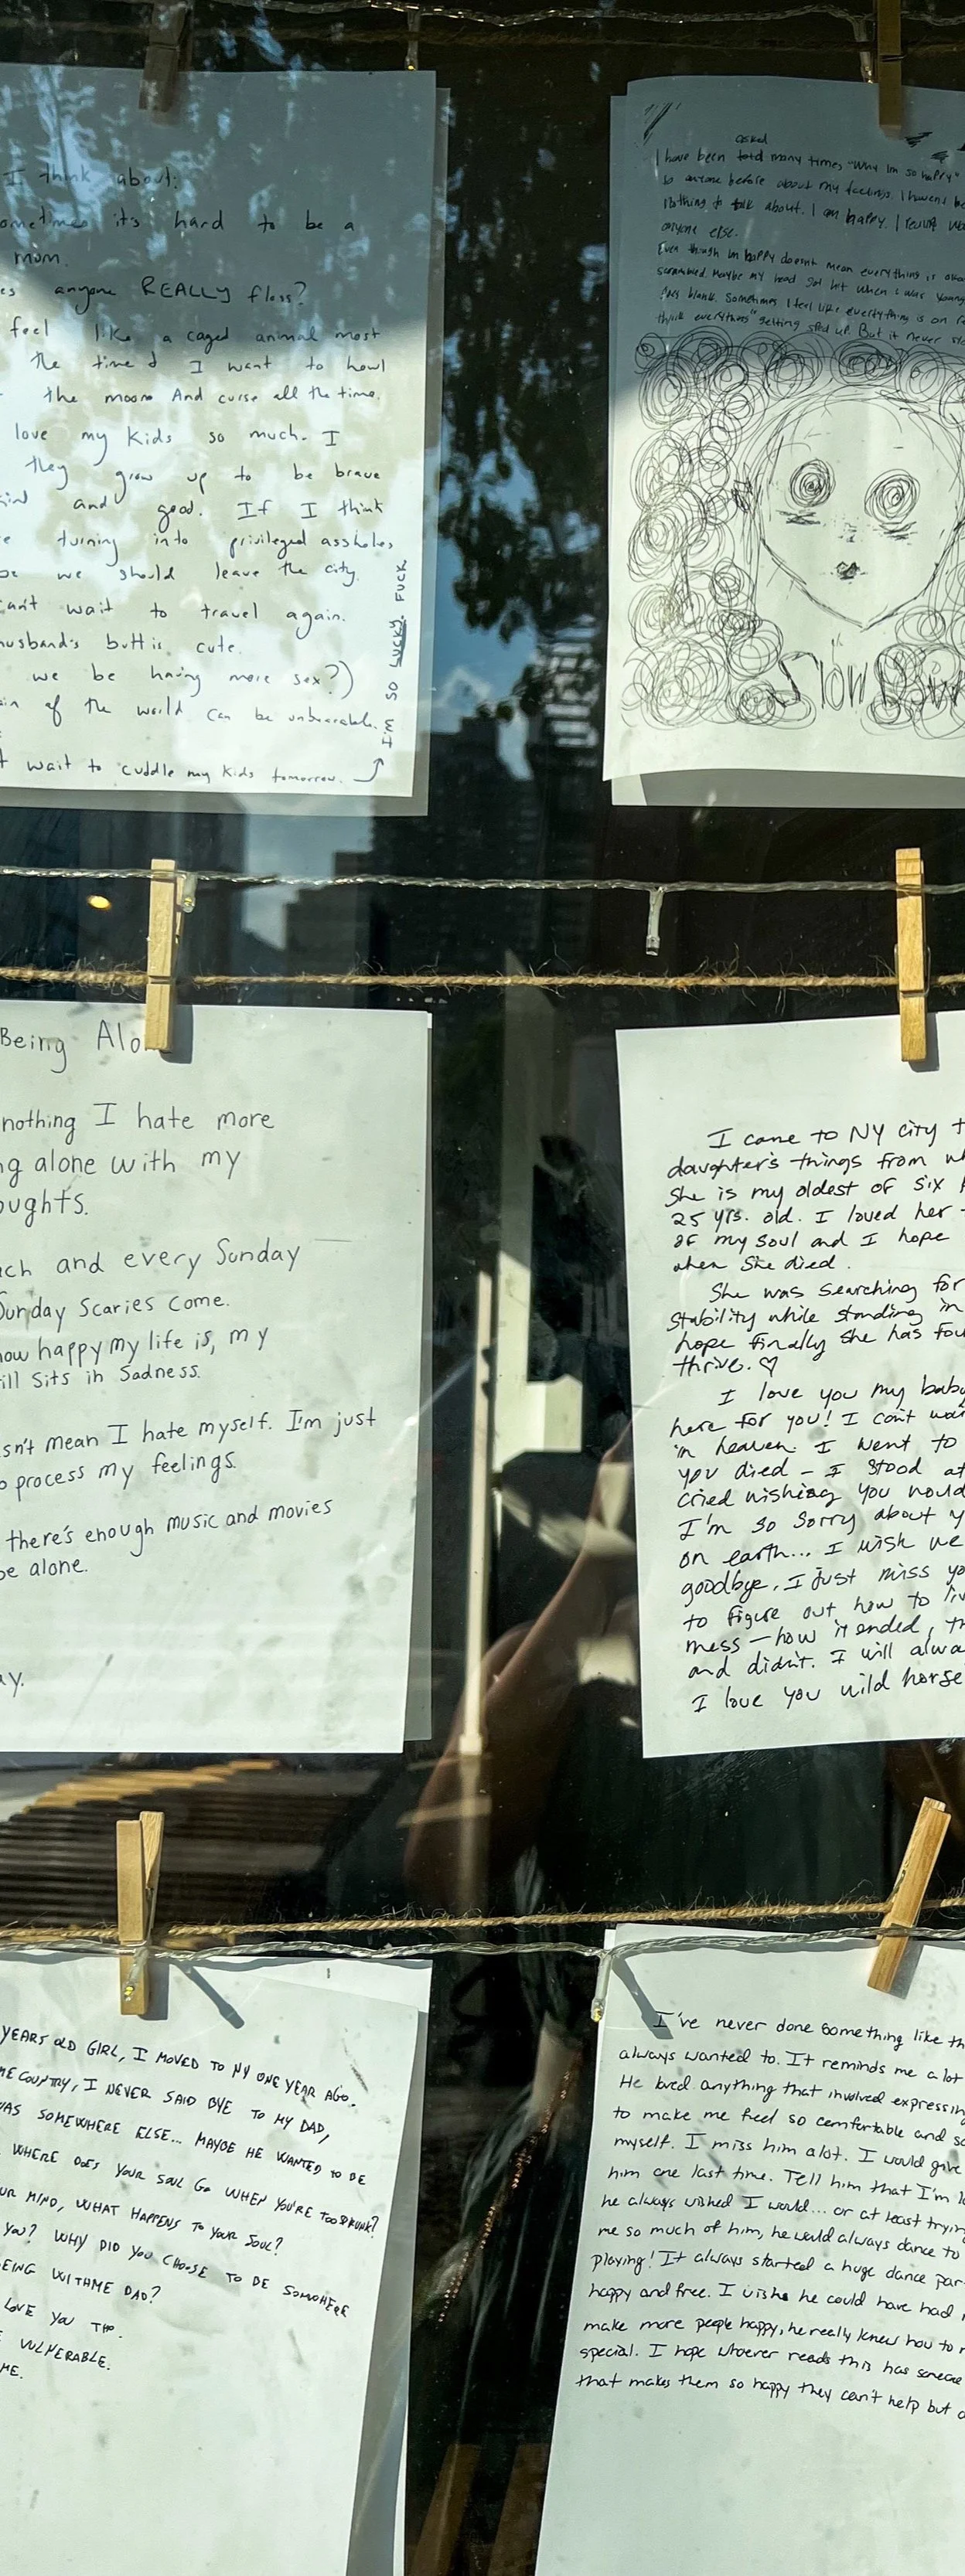 I think about:
sometimes it's hard to be a
mom.
anyone REALLY floss?
feel like a caged animal most
the time & I want to howl
the moon. And curse all the time.
love my kids so much. I
they grow up to be brave
and good. If I think
turning into privileged assholes,
we should leave the city.
can't wait to travel again.
husband's butt is cute.
we be having more sex?)
of the world can be unbearable.
wait to cuddle my kids tomorrow.
I'M SO LUCKY. FUCK
asked
I have been told many times "Why Im so happy"
to anyone before about my feelings. I havent
Nothing to talk about. I am happy. I
anyone else.
Even though Im happy doesnt mean everything is
scrambled. Maybe my head got hit when I was young
goes blank. Sometimes I feel like everything is on
think everythings getting sped up. But it never
Slow
Being Alo
nothing I hate more
alone with my
oughts.
each and every Sunday
Sunday Scaries come.
how happy my life is, my
still sits in sadness.
doesn't mean I hate myself. I'm just
process my feelings.
there's enough music and movies
be alone.
ay.
I came to NY city t
daughter's things from wh
She is my oldest of six
25 yrs. old. I loved her
of my soul and I hope
when she died.
She was searching for
stability while standing in
hope finally she has fou
thrive. ♡
I love you my baby
here for you! I can't wai
in heaven. I went to
you died - I stood at
cried wishing you would
I'm so sorry about y
on earth... I wish we
goodbye. I just miss yo
to figure out how to liv
mess - how it ended, th
and didn't. I will alwa
I love you wild horse
YEARS OLD GIRL, I MOVED TO NY ONE YEAR AGO.
ME COUNTRY, I NEVER SAID BYE TO MY DAD,
WAS SOMEWHERE ELSE... MAYBE HE WANTED TO BE
WHERE DOES YOUR SOUL GO WHEN YOU'RE TOO DRUNK?
UR MIND, WHAT HAPPENS TO YOUR SOUL?
YOU? WHY DID YOU CHOOSE TO BE SOMWHERE
EING WITH ME DAD?
LOVE YOU THO.
VULNERABLE.
ME.
I've never done something like th
always wanted to. It reminds me a lot
He loved anything that involved expressing
to make me feel so comfortable and so
myself. I miss him a lot. I would give
him one last time. Tell him that I'm l
he always wished I would... or at least tryin
me so much of him, he would always dance to
playing! It always started a huge dance par
happy and free. I wish he could have had
make more people happy, he really knew how to
special. I hope whoever reads this has someone
that makes them so happy they can't help but